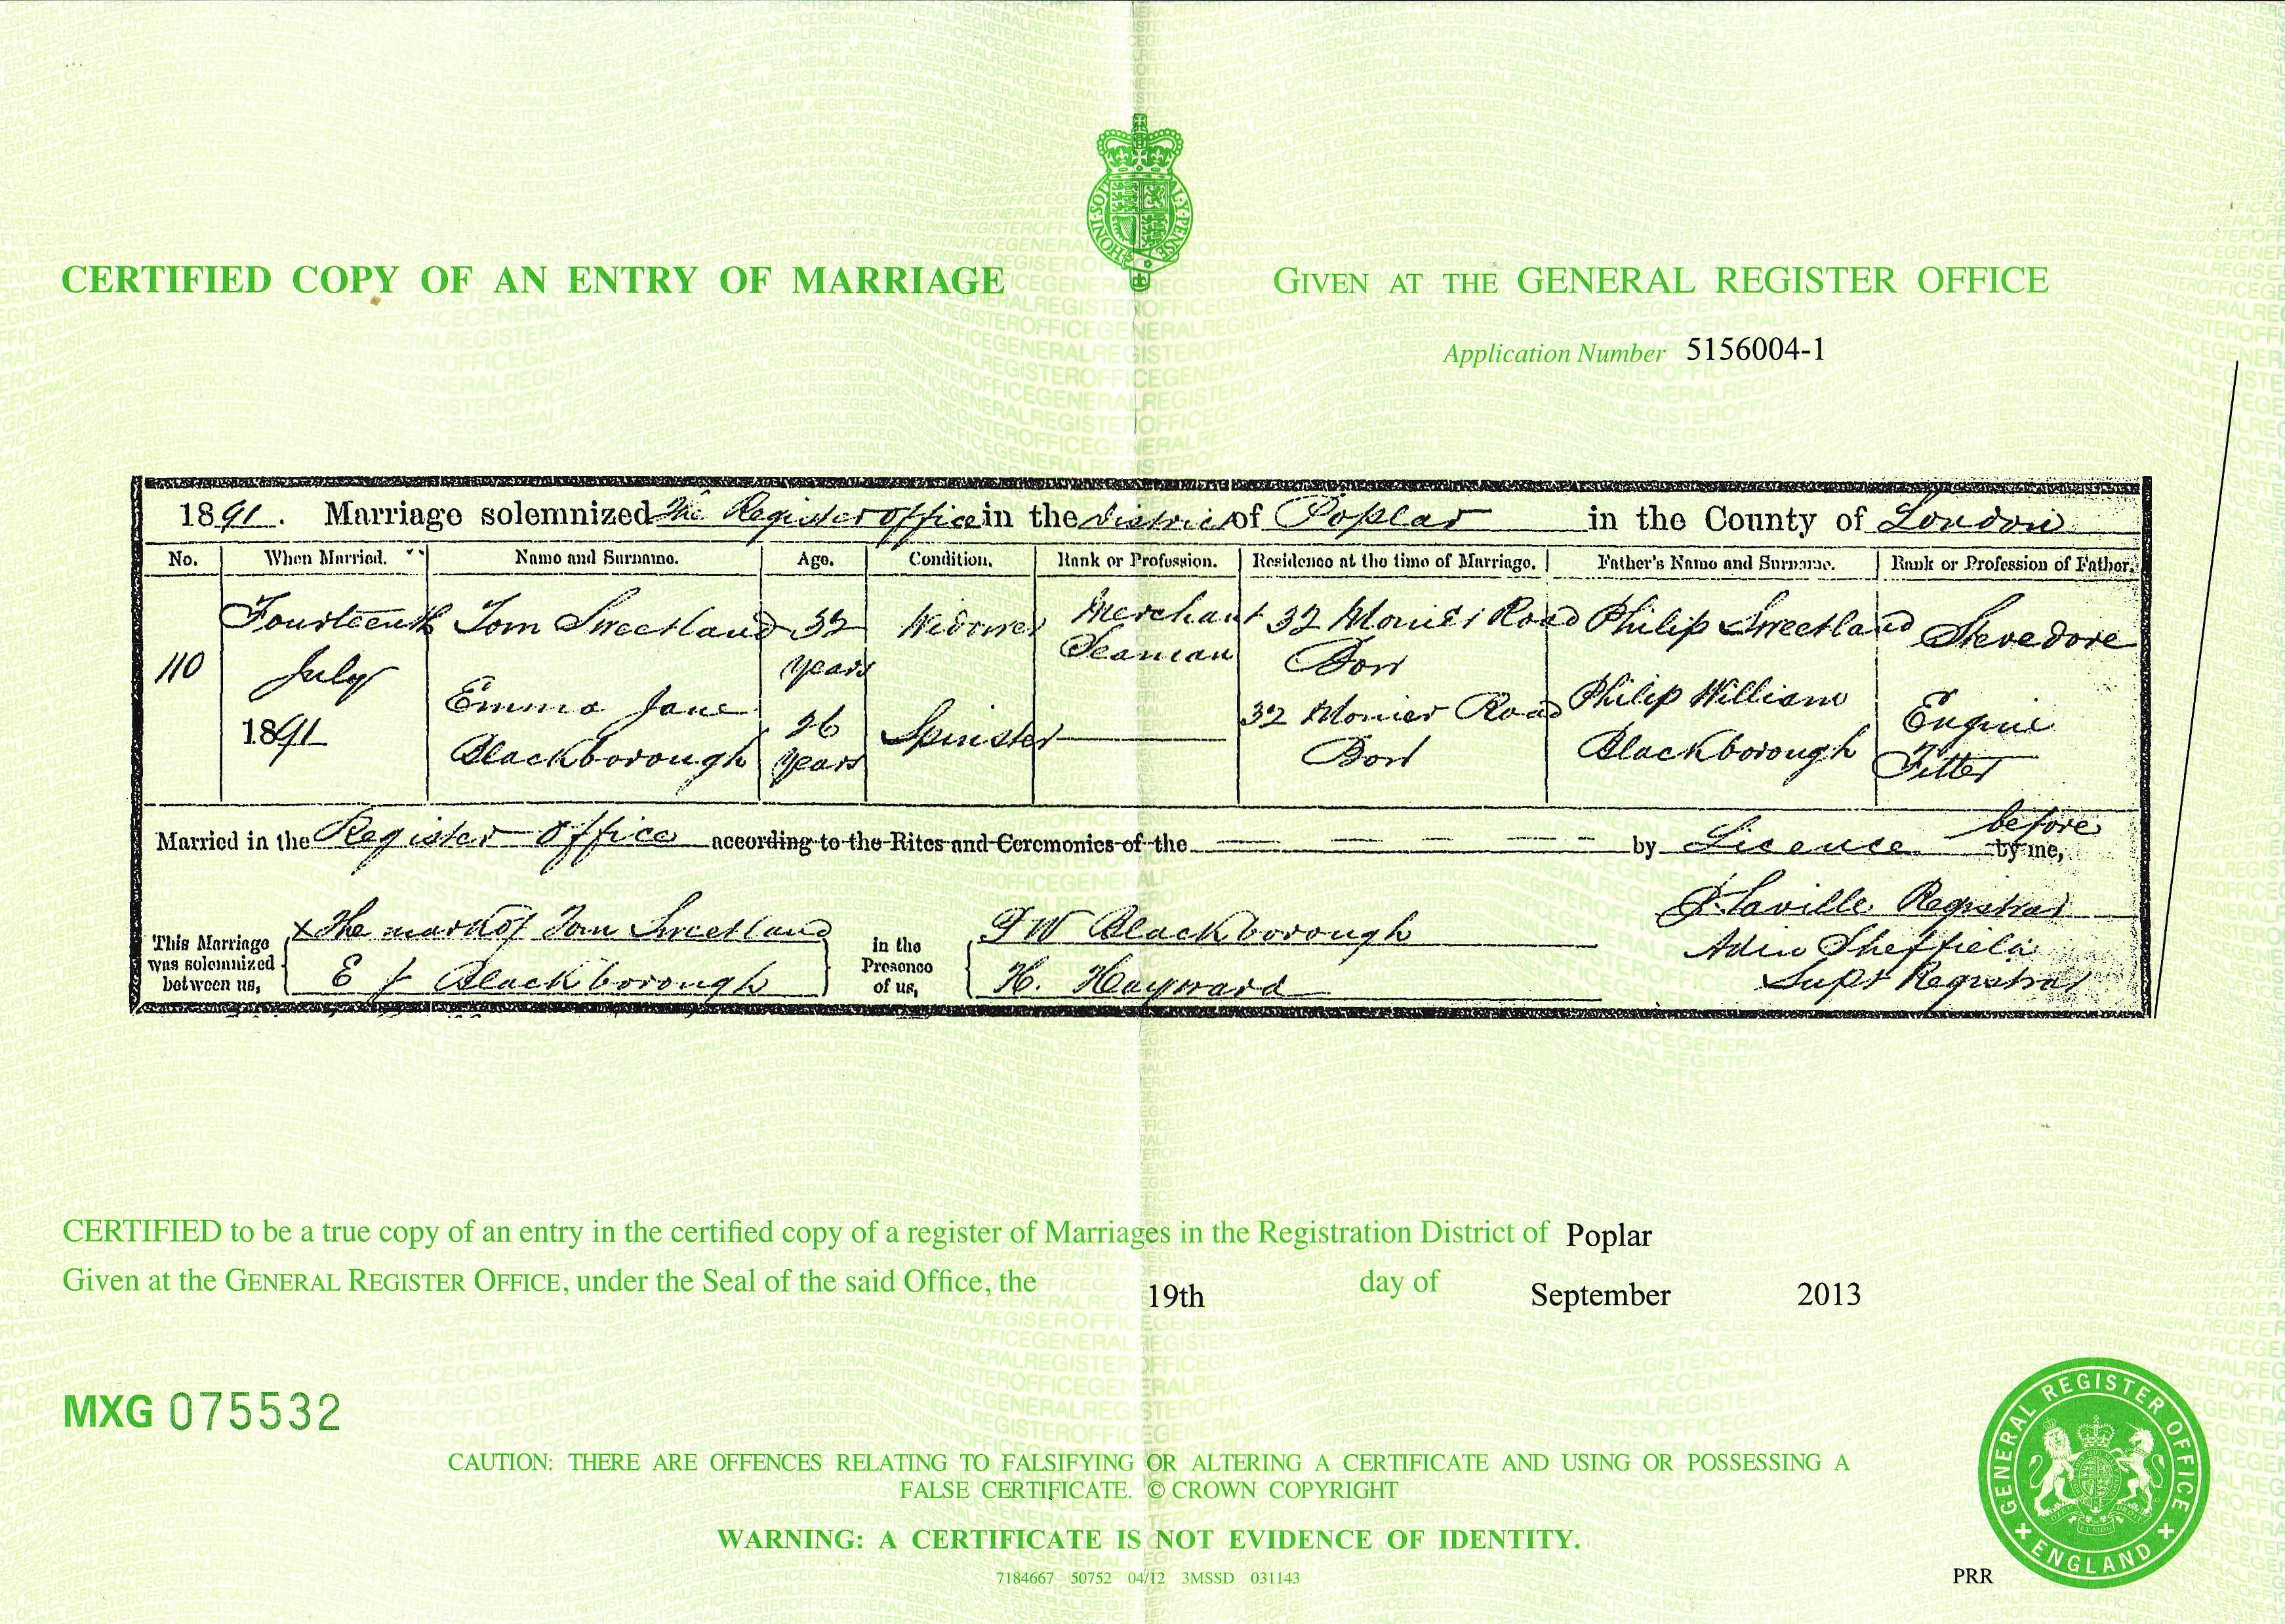 HONI·SOIT·Q·MAL·Y·PENSE
CERTIFIED COPY OF AN ENTRY OF MARRIAGE
GIVEN AT THE GENERAL REGISTER OFFICE
Application Number 5156004-1
1891. Marriage solemnized at The Register Office in the District of Poplar in the County of London
No. When Married. Name and Surname. Age. Condition. Rank or Profession. Residence at the time of Marriage. Father's Name and Surname. Rank or Profession of Father.
110 Fourteenth July 1891
Tom Sweetland 32 years Widower Merchant Seaman 32 Monier Road Bow Philip Sweetland Stevedore
Emma Jane Blackborough 26 years Spinster ——— 32 Monier Road Bow Philip William Blackborough Engine Fitter
Married in the Register Office according to the Rites and Ceremonies of the by Licence before by me,
This Marriage was solemnized between us,
X The mark of Tom Sweetland
E J Blackborough
in the Presence of us,
P W Blackborough
H. Hayward
Laville Registrar
Adin Sheffield
Supt Registrar
CERTIFIED to be a true copy of an entry in the certified copy of a register of Marriages in the Registration District of Poplar
Given at the GENERAL REGISTER OFFICE, under the Seal of the said Office, the 19th day of September 2013
MXG 075532
CAUTION: THERE ARE OFFENCES RELATING TO FALSIFYING OR ALTERING A CERTIFICATE AND USING OR POSSESSING A
FALSE CERTIFICATE. © CROWN COPYRIGHT
WARNING: A CERTIFICATE IS NOT EVIDENCE OF IDENTITY.
7184667 50752 04/12 3MSSD 031143
PRR
GENERAL REGISTER OFFICE
ENGLAND